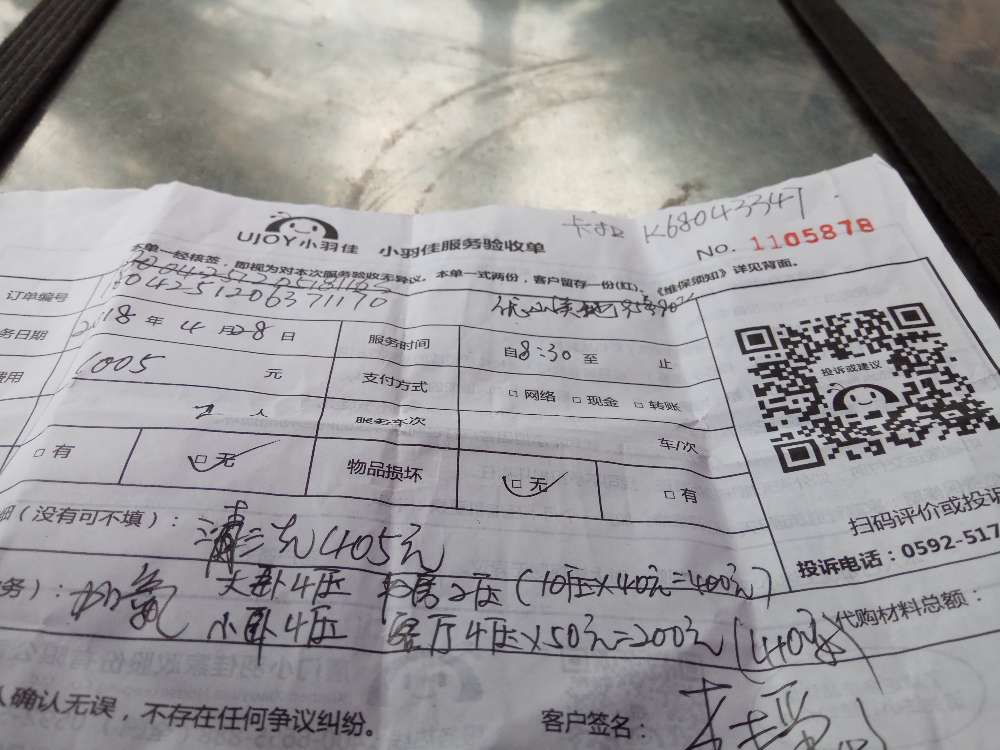 卡扣 K68043347
UJOY小羽佳 小羽佳服务验收单
NO. 1105878
本单一经核签，即视为对本次服务验收无异议。本单一式两份，客户留存一份(红)。《维保须知》详见背面。
订单编号 1804251206371170
务日期 2018 年 4 月 28 日 服务时间 自8:30 至 止
费用 1005 元 支付方式 □ 网络 □ 现金 □ 转账
2 人 服务车次 车/次
□ 有 □ 无 物品损坏 □ 无 □ 有
投诉或建议
扫码评价或投诉
投诉电话：0592-517
细（没有可不填）： 清洗 405元
务）： 加氟 大卧4压 书房2压（10压×40元=400元）
小卧4压 客厅4压×50元=200元
代购材料总额：
人确认无误，不存在任何争议纠纷。
客户签名：